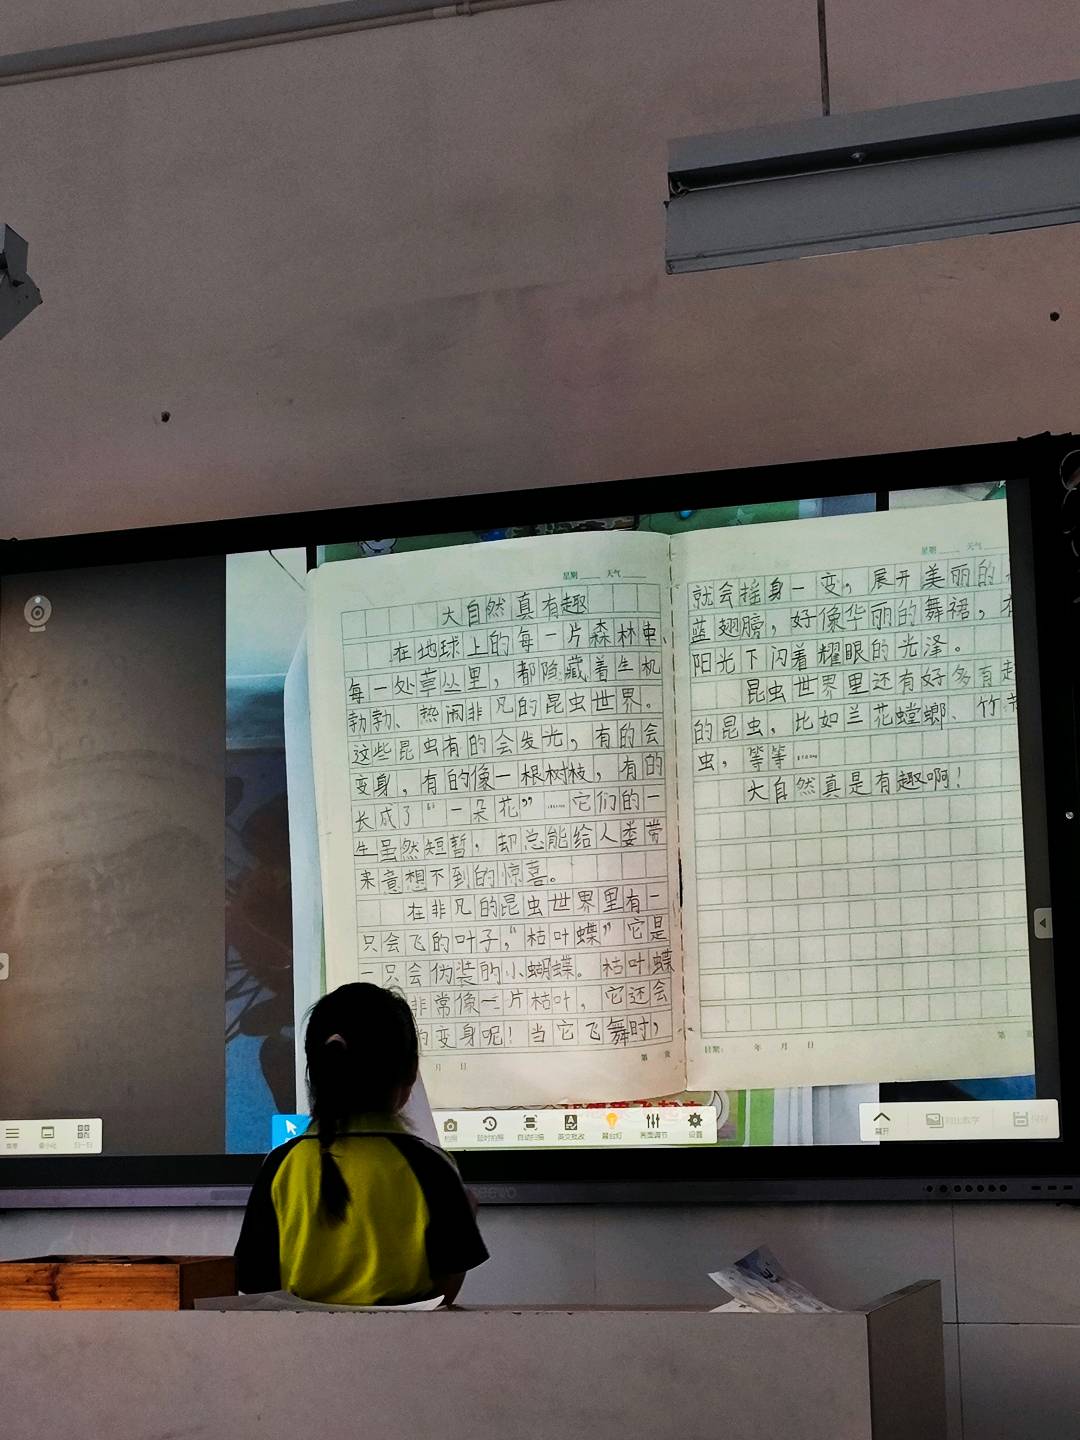 星期 天气
大自然真有趣
在地球上的每一片森林里、
每一处草丛里，都隐藏着生机
勃勃、热闹非凡的昆虫世界。
这些昆虫有的会发光，有的会
变身，有的像一根树枝，有的
长成了“一朵花”……它们的一
生虽然短暂，却总能给人类带
来意想不到的惊喜。
在非凡的昆虫世界里有一
只会飞的叶子，“枯叶蝶”它是
一只会伪装的小蝴蝶。枯叶蝶
非常像一片枯叶，它还会
变身呢！当它飞舞时，
月 日
第 页
星期 天气
就会摇身一变，展开美丽的
蓝翅膀，好像华丽的舞裙，在
阳光下闪着耀眼的光泽。
昆虫世界里还有好多有趣
的昆虫，比如兰花螳螂、竹节
虫，等等……
大自然真是有趣啊！
日期： 年 月 日
第 页
菜单
最小化
扫一扫
拍照
延时拍照
自动扫描
英文批改
展台灯
画面调节
设置
展开
同比教学
保存